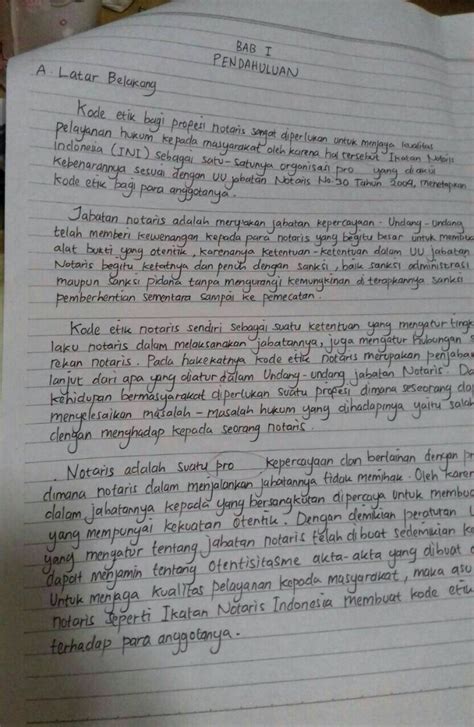 BAB I
PENDAHULUAN
A. Latar Belakang
Kode etik bagi propesi notaris sangat diperlukan untuk menjaga kualitas
pelayanan hukum kepada masyarakat oleh karena hal tersebut Ikatan Notaris
Indonesia (INI) sebagai satu-satunya organisasi pro yang diakui
Kebenarannya sesuai dengan UU jabatan Notaris No.30 Tahun 2004, menetapkan
kode etik bagi para anggotanya.
Jabatan notaris adalah merupakan jabatan kepercayaan - Undang-undang
telah memberi kewenangan kepada para notaris yang begitu besar untuk membuat
alat bukti yang otentik, karenanya Ketentuan-ketentuan dalam UU jabatan
Notaris begitu ketatnya dan penuh dengan sanksi, baik sanksi administrasi
maupun sanksi pidana tanpa mengurangi kemungkinan di terapkannya sanksi
pemberhentian sementara sampai ke pemecatan.
Kode etik notaris sendiri sebagai suatu ketentuan yang mengatur tingk
laku notaris dalam melaksanakan jabatannya, juga mengatur hubungan s
rekan notaris. Pada hakekatnya kode etik notaris merupakan penjaba
lanjut dari apa yang diatur dalam Undang-undang jabatan Notaris. Da
kehidupan bermasyarakat diperlukan suatu propesi dimana seseorang dap
menyelesaikan masalah-masalah hukum yang dihadapinya yaitu salah
dengan menghadap kepada seorang notaris.
Notaris adalah suatu pro kepercayaan dan berlainan dengan pr
dimana notaris dalam menjalankan jabatannya tidak memihak. Oleh karen
dalam jabatannya kepada yang bersangkutan dipercaya untuk membua
yang mempunyai kekuatan otentik. Dengan demikian peraturan U
yang mengatur tentang jabatan notaris telah dibuat sedemikian
dapat menjamin tentang Otentisitasme akta-akta yang dibuat
Untuk menjaga kualitas pelayanan kepada masyarakat, maka aso
notaris seperti Ikatan Notaris Indonesia membuat kode etik
terhadap para anggotanya.